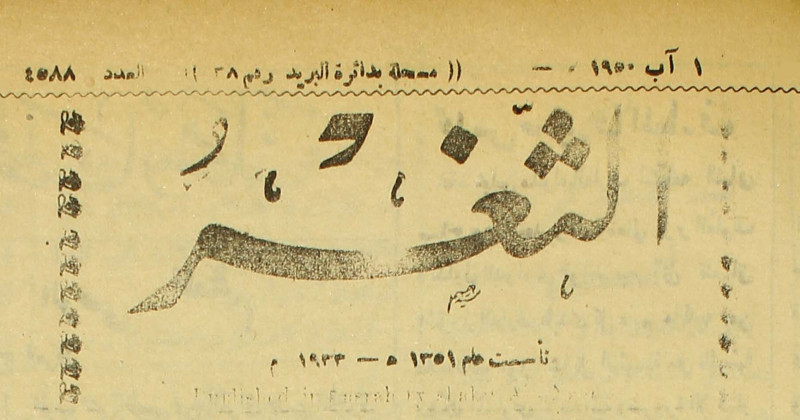 ١ آب ١٩٥٠ — (( مسجلة بدائرة البريد رقم ٣٨ )) العدد ٤٥٨٨
الثغر
تأسست عام ١٣٥١ ه — ١٩٣٣ م